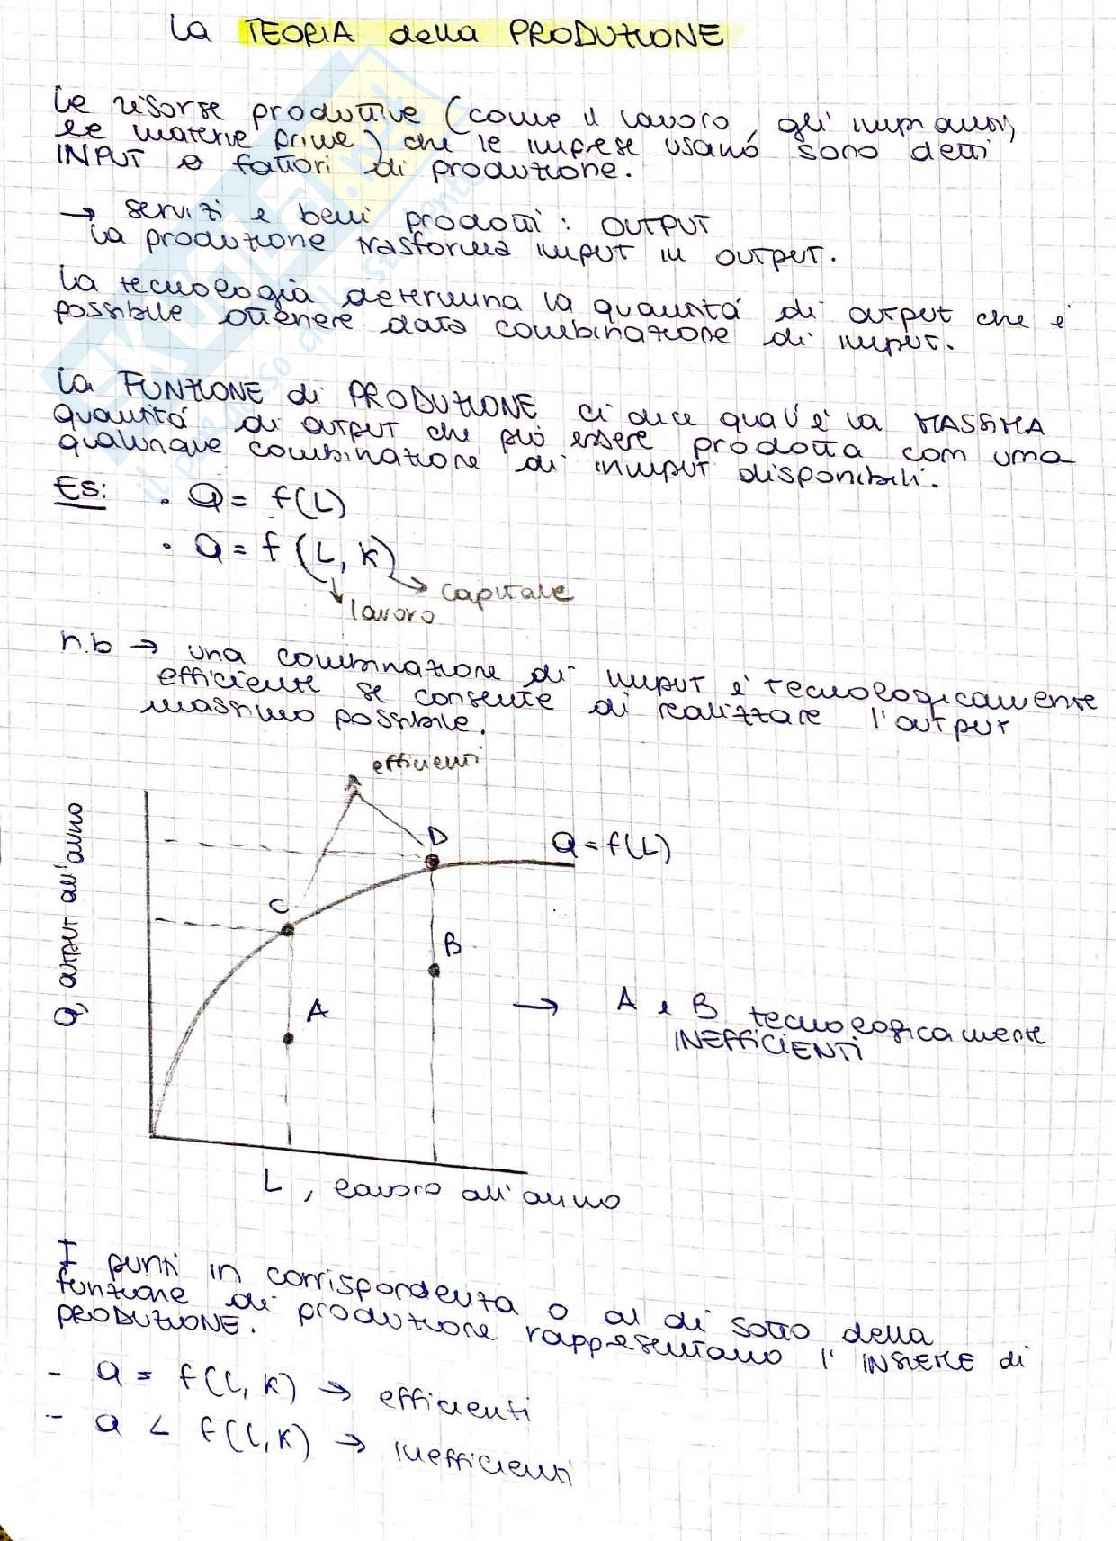 La TEORIA della PRODUZIONE
Le risorse produttive (come il lavoro, gli impianti,
le materie prime) che le imprese usano sono detti
INPUT o fattori di produzione.
→ servizi e beni prodotti: OUTPUT
La produzione trasforma imput in output.
La tecnologia determina la quantità di output che è
possibile ottenere data combinazione di imput.
La FUNZIONE di PRODUZIONE ci dice qual'è la MASSIMA
quantità di output che può essere prodotta con una
qualunque combinazione di imput disponibili.
ES: • Q = f(L)
• Q = f (L, K)
→ capitale
lavoro
n.b → una combinazione di imput è tecnologicamente
efficiente se consente di realizzare l'output
massimo possibile.
efficienti
Q, output all'anno
D
Q = f(L)
C
B
A
→ A e B tecnologicamente
INEFFICIENTI
L, lavoro all'anno
I punti in corrispondenza o al di sotto della
funzione di produzione rappresentano l'INSIEME di
PRODUZIONE.
- Q = f(L, K) → efficienti
- Q < f(L, K) → inefficienti